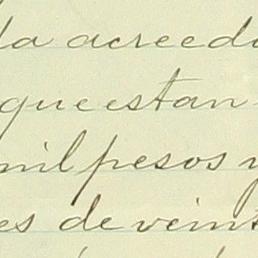 la acreedo
que estan
mil pesos y
es de veint